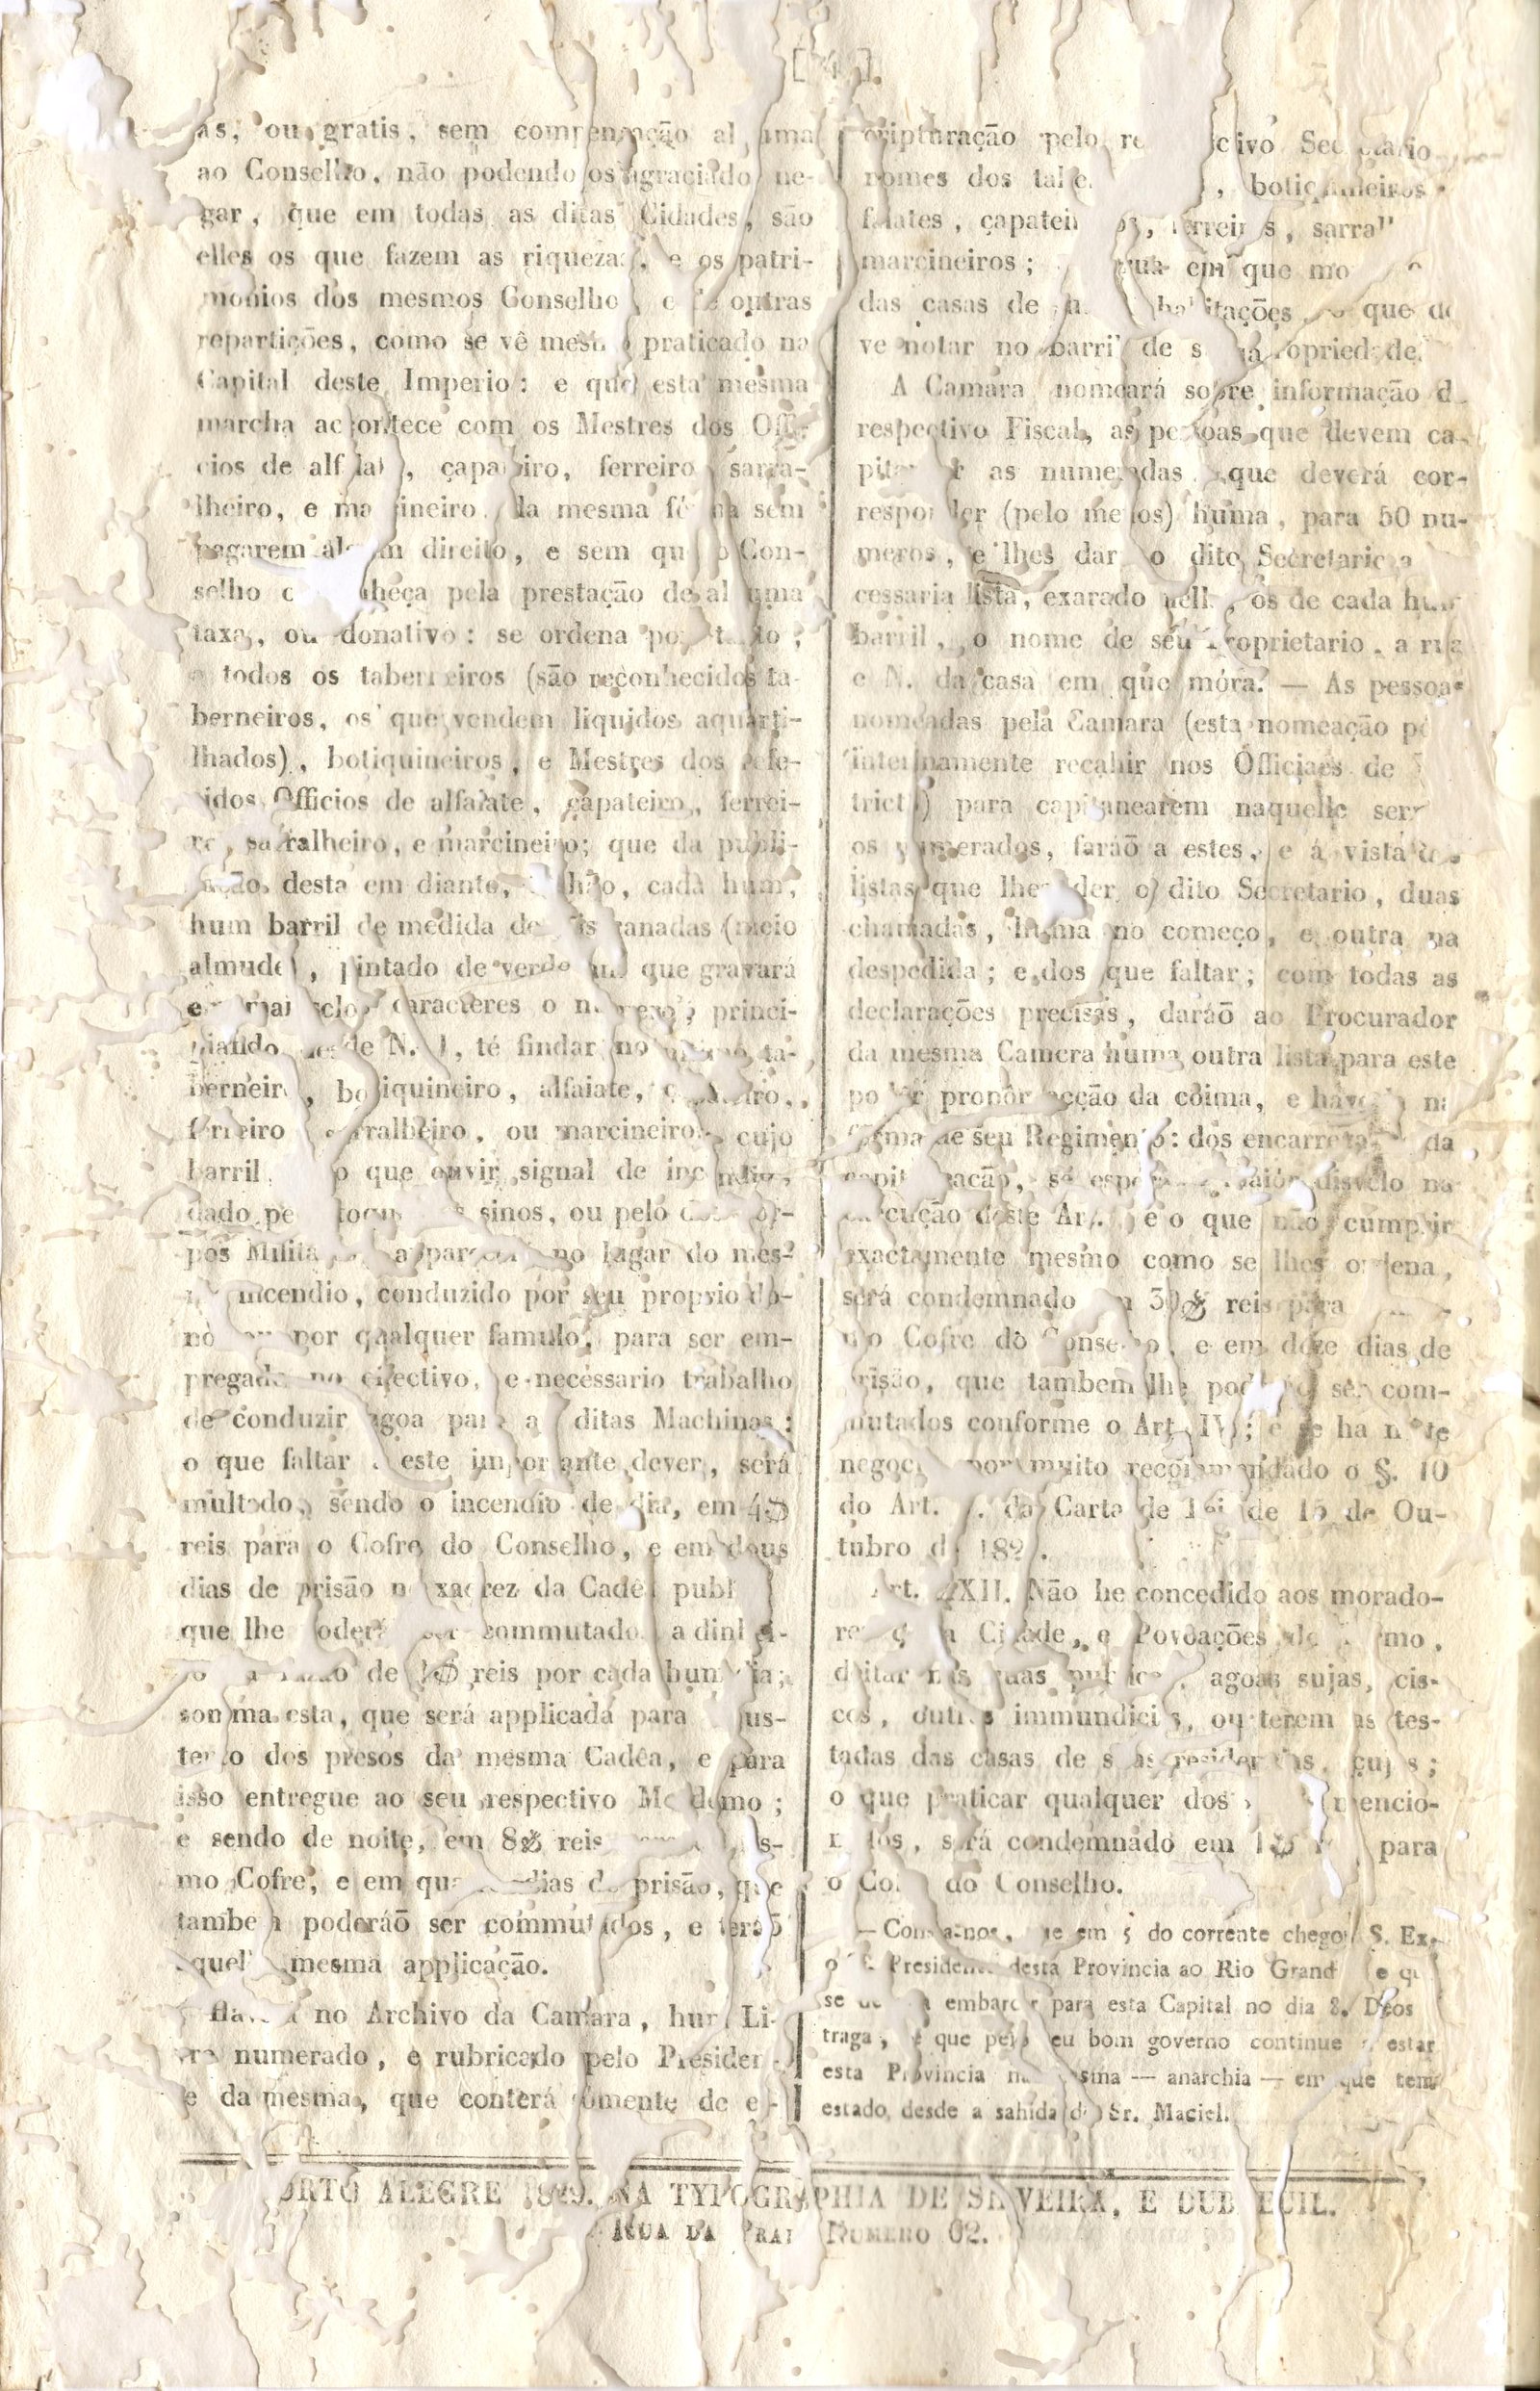 [ 4 ]
as, ou gratis, sem compensação alguma
ao Conselho, não podendo os agraciado ne-
gar, que em todas as ditas Cidades, são
elles os que fazem as riquezas, e os patri-
monios dos mesmos Conselho, outras
repartições, como se vê mesmo praticado na
Capital deste Imperio: e que esta mesma
marcha acontece com os Mestres dos Offi-
cios de alfaiate, çapateiro, ferreiro, sarra-
lheiro, e marcineiro, da mesma fórma sem
pagarem algum direito, e sem que o Con-
selho conheça pela prestação de alguma
taxa, ou donativo: se ordena portanto;
a todos os taberneiros (são reconhecidos ta-
berneiros, os que vendem liquidos aquarti-
lhados), botiquineiros, e Mestres dos refe-
ridos Officios de alfaiate, çapateiro, ferrei-
ro, sarralheiro, e marcineiro; que da publi-
cação desta em diante, tenhão, cada hum,
hum barril de medida de seis canadas (meio
almude), pintado de verde que gravará
em maiusclos caracteres o numero, princi-
piando desde N. 1, té findar no ultimo ta-
berneiro, botiquineiro, alfaiate, çapateiro,
ferreiro sarralheiro, ou marcineiro, cujo
barril, o que ouvir signal de incendio,
dado pe toque sinos, ou pelo dos Cor-
pos Milita apparecerá no lugar do mes-
mo incendio, conduzido por seu proprio do-
no ou por qualquer famulo, para ser em-
pregado no effectivo, e necessario trabalho
de conduzir agoa para as ditas Machinas:
o que faltar a este importante dever, será
multado, sendo o incendio de dia, em 4$
reis para o Cofre do Conselho, e em dous
dias de prisão no xadrez da Cadêa publ
que lhe poderá ser commutado a dinhei-
ro razão de 1$ reis por cada hum dia;
somma esta, que será applicada para sus-
tento dos presos da mesma Cadêa, e para
isso entregue ao seu respectivo Mordomo;
e sendo de noite, em 8$ reis mes-
mo Cofre, e em quatro dias de prisão, que
tambem poderáõ ser commutados, e teráõ
aquella mesma applicação.
Haverá no Archivo da Camara, hum Li-
vro numerado, e rubricado pelo Presiden-
te da mesma, que conterá sómente de es-
cripturação pelo respectivo Secretario
nomes dos taberneiros, botiquineiros
faiates, çapateiros, ferreiros, sarral
marcineiros; rua em que mo
das casas de habitações que de
ve notar no barril de sua propriedade.
A Camara nomeará sobre informação d
respectivo Fiscal, as pessoas que devem ca-
pitanear as numeradas que deverá cor-
responder (pelo menos) huma, para 50 nu-
meros, e lhes dará o dito Secretario a
cessaria lista, exarado nella, os de cada hum
barril, o nome de seu proprietario, a rua
e N. da casa em que móra. — As pessoas
nomeadas pela Camara (esta nomeação pó
internamente recahir nos Officiaes de
tricto) para capitanearem naquelle ser
os numerados, faráõ a estes, e á vista das
listas que lhes der o dito Secretario, duas
chamadas, huma no começo, e outra na
despedida; e dos que faltar; com todas as
declarações precisas, daráõ ao Procurador
da mesma Camera huma outra lista para este
poder propôr acção da coima, e have na
fórma de seu Regimento: dos encarregados da
capitaneacão, se espera maiór disvelo na
execução deste Art. e o que não cumprir
exactamente mesmo como se lhes ordena,
será condemnado em 30$ reis para
o Cofre do Conselho, e em doze dias de
prisão, que tambem lhe poderá ser com-
mutados conforme o Art. IV; e se ha neste
negocio por muito recommendado o §. 10
do Art. da Carta de Lei de 15 de Ou-
tubro de 182 .
Art. XXII. Não he concedido aos morado-
res da Cidade, e Povoações do Termo,
deitar nas ruas publicas, agoas sujas, cis-
cos, outras immundicias, ou terem as tes-
tadas das casas de suas residencias, çujas;
o que praticar qualquer dos mencio-
nados, será condemnado em 1$ reis para
o Cofre do Conselho.
— Consta-nos, que em 5 do corrente chegou S. Ex.
o Sr. Presidente desta Provincia ao Rio Grande e que
se embarcar para esta Capital no dia 8. Deos
traga, e que pelo seu bom governo continue a estar
esta Provincia na mesma — anarchia — em que tem
estado desde a sahida do Sr. Maciel.
PORTO ALEGRE 1829. NA TYPOGRAPHIA DE SILVEIRA, E DUBREUIL.
RUA DA PRAIA NUMERO 62.